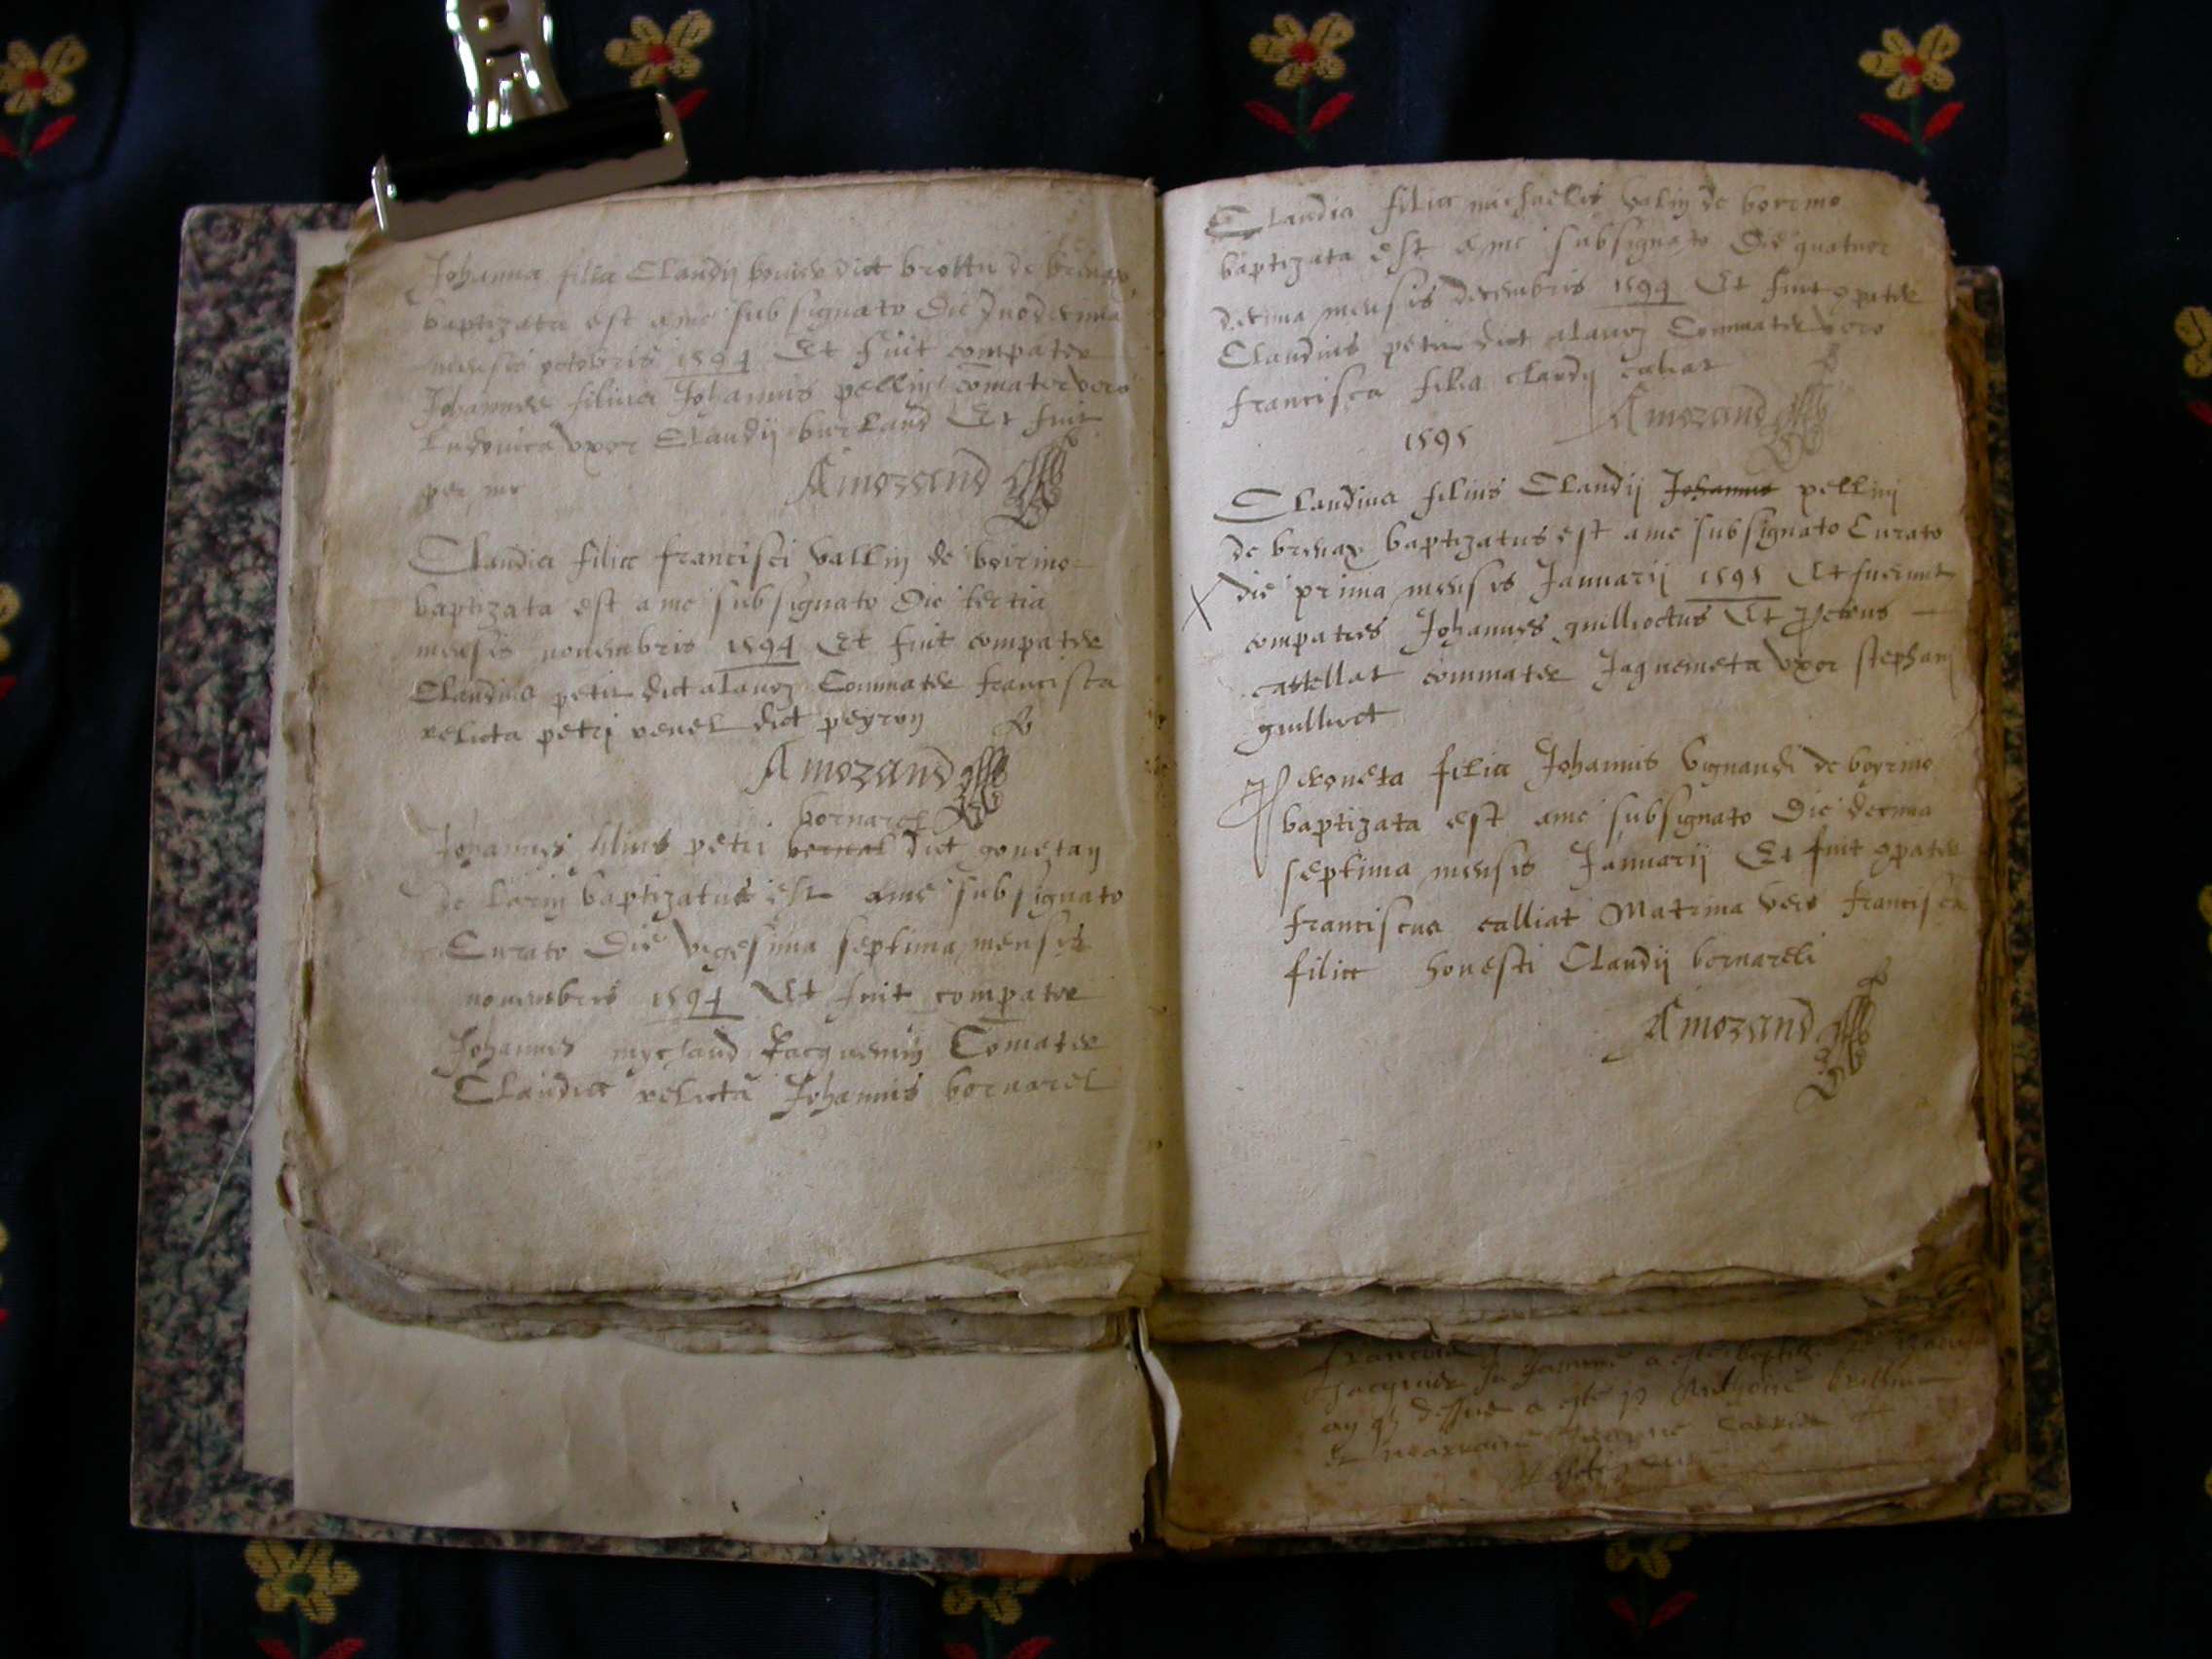 Johanna filia Claudij bouier dict brottu de brenax
baptizata est a me subsignato die duodecima
mensis octobris 1594 Et fuit compater
Johannes filius Johannis pellin comater vero
Ludovica uxor Claudij burland Et fuit
per me Amozand
Claudia filia francisci vallin de boirino
baptizata est a me subsignato die tertia
mensis novembris 1594 Et fuit compater
Claudius petit dict alauoz Commater francisca
relicta petri venel dict peyron
Amozand
bornarel
Johannes filius petri bornal dict gonetan
de lorin baptizatus est a me subsignato
Curato Die vigesima septima mensis
novembris 1594 Et fuit compater
Johannes mychaud Jacquemin Comater
Claudia relicta Johannis bornarel
Claudia filia michaelis valin de borrino
baptizata est a me subsignato Die quatuor
decima mensis decembris 1594 Et fuit compater
Claudius petit dict alauoz Commater vero
francisca filia claudij caliat
Amozand
1595
Claudius filius Claudij Johannis pellin
de brenax baptizatus est a me subsignato Curato
die prima mensis Januarij 1595 Et fuerunt
compatres Johannes guilliottus Et Petrus
castellat commater Jaquemeta uxor stephani
guilliott
Peroneta filia Johannis Vignandi de boyrino
baptizata est a me subsignato Die decima
septima mensis Januarij Et fuit compater
franciscus calliat Matrina vero francisca
filia honesti Claudij bornareli
Amozand